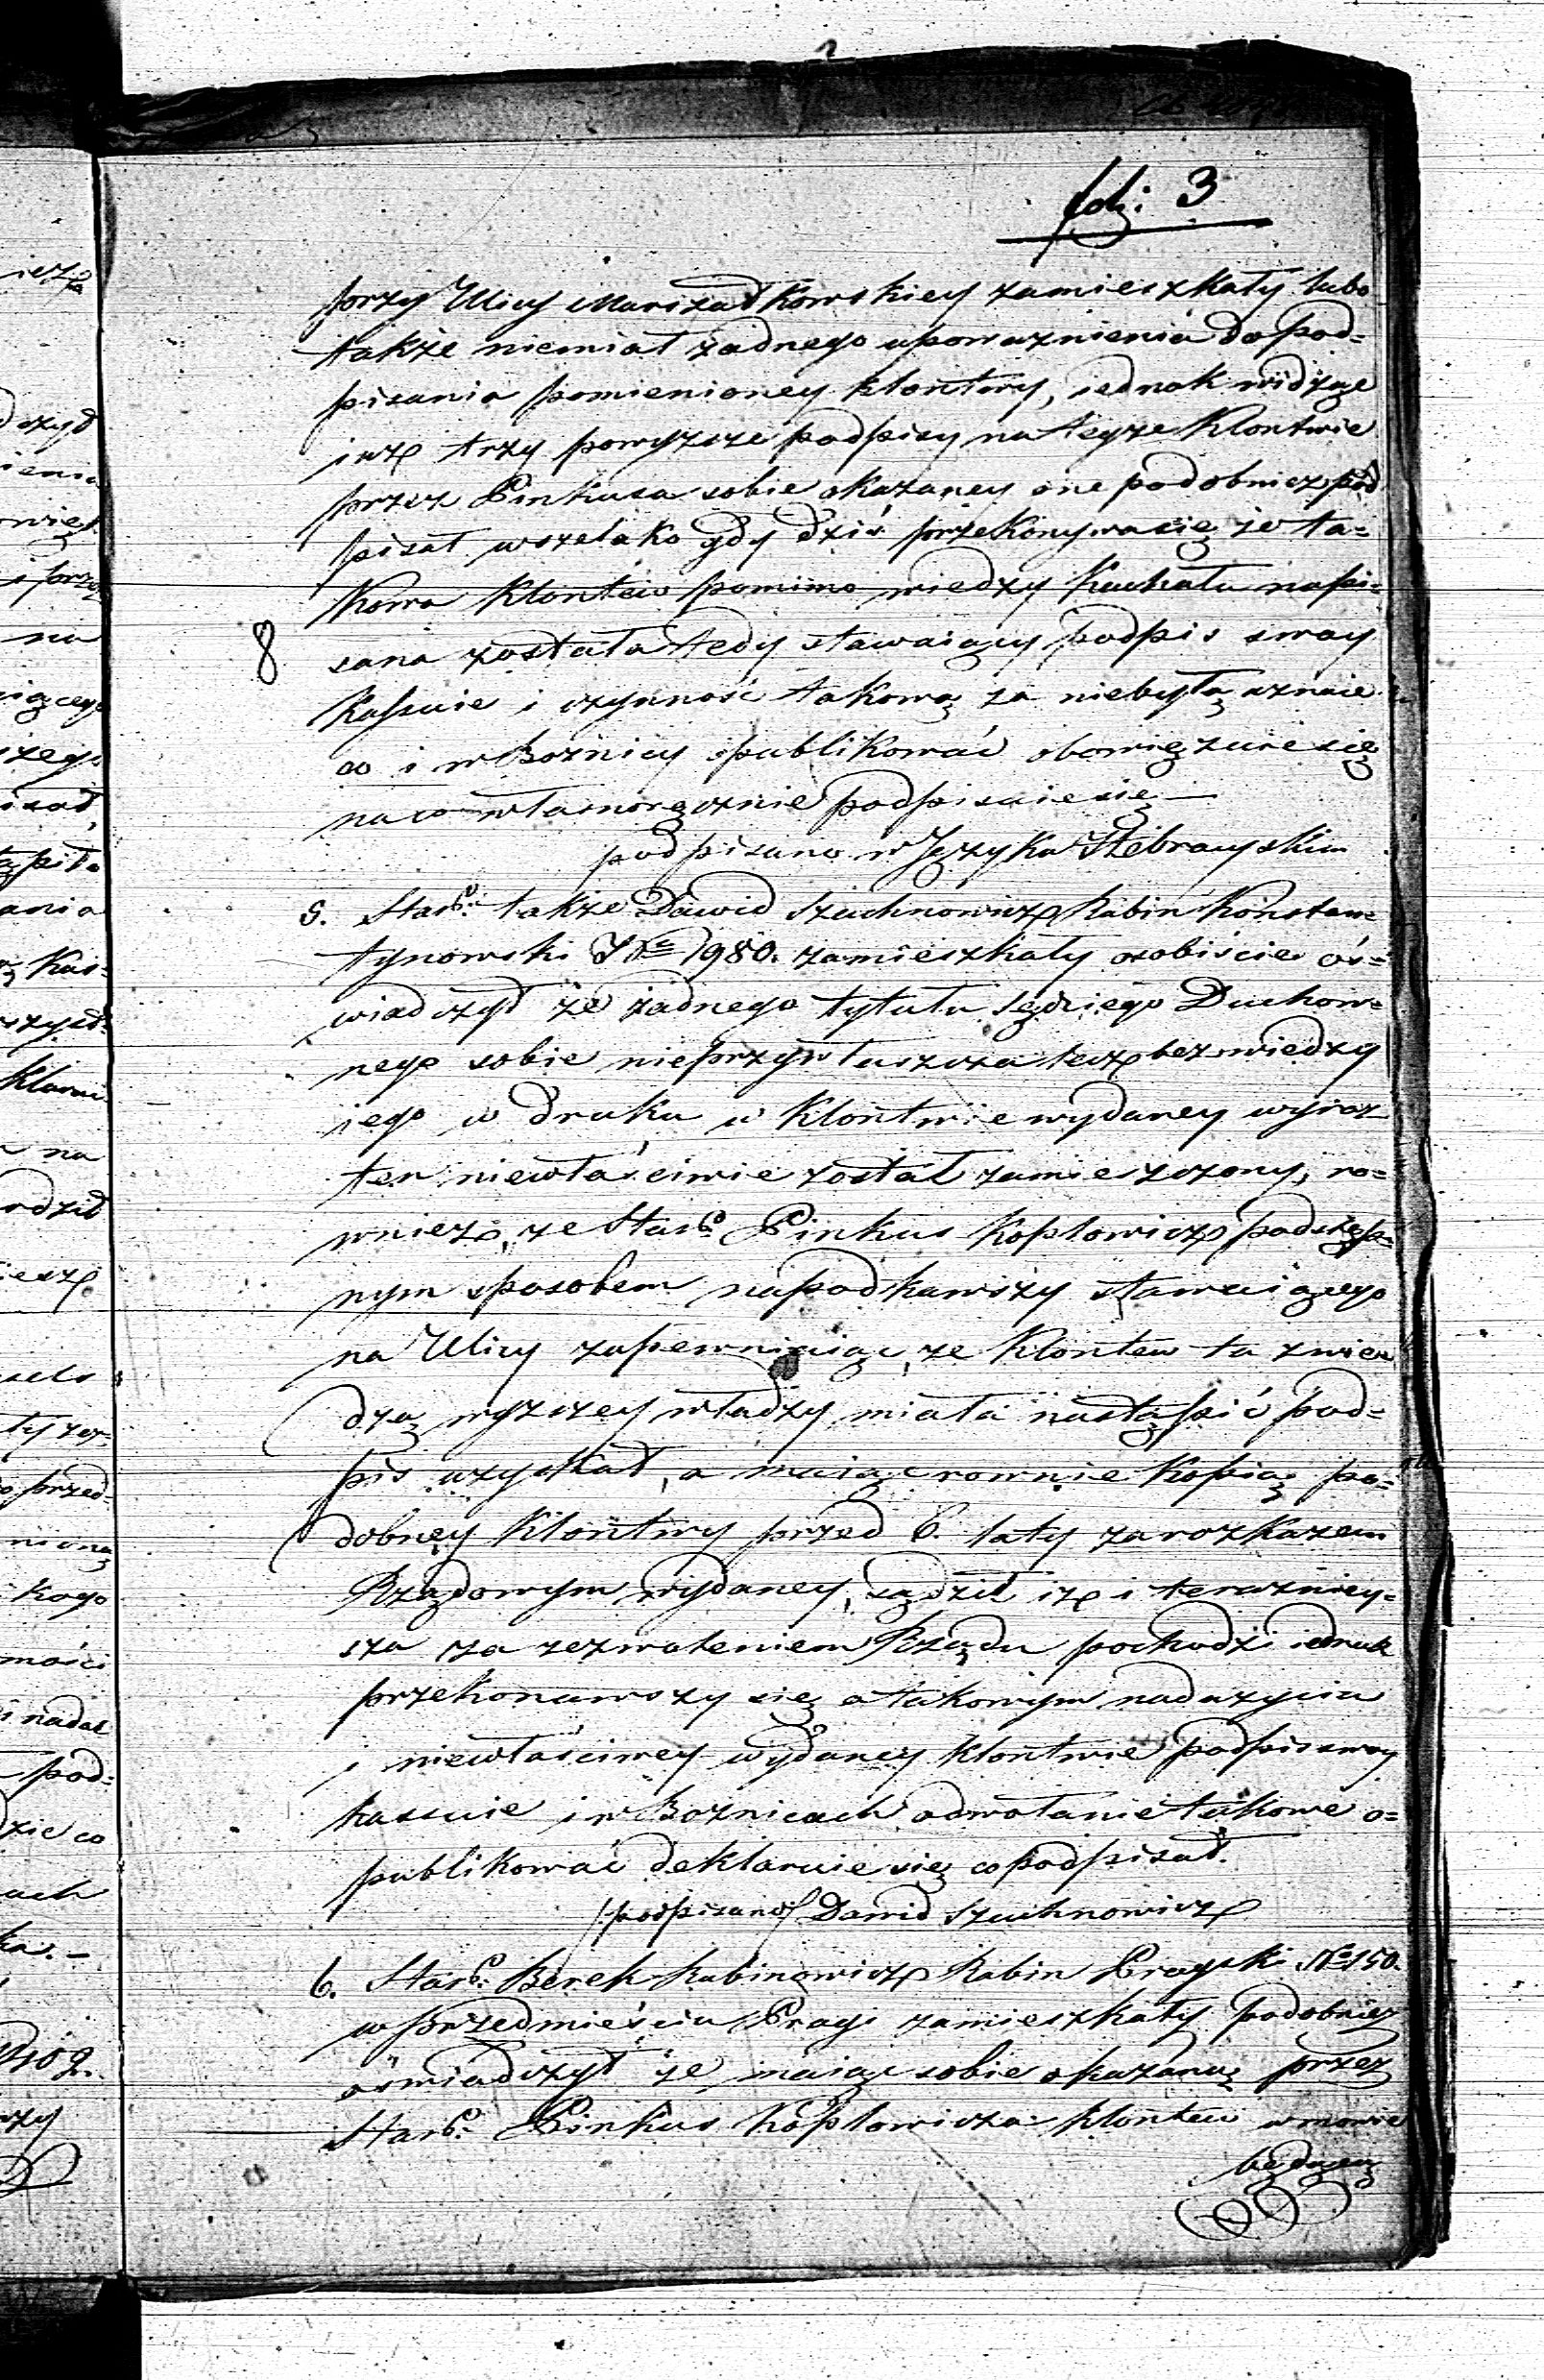 fol: 3
przy Ulicy Marszałkowskiey zamieszkały lubo
także niemiał żadnego upoważnienia do pod=
pisania pomienioney klontwy, iednak widząc
iuż trzy powyższe podpisy na teyże Klontwie
przez Pinkusa sobie okazaney one podobnież pod
pisał wszelako gdy dziś przekonywa się że ta=
kowa Klontew pomimo wiedzy Kachału napi=
8 sana została tedy stawaiący podpis swoy
kassuie i czynność takową za niebyłą uznaie
co i w Bożnicy opublikować obowięzuie się
na co własnoręcznie podpisuie się —
podpisano w Języku Hebrayskim
5. Starb: także Dawid Szachnowicz Rabin Konstan=
tynowski No 1980. zamieszkały osobiście oś=
wiadczył że żadnego tytułu Sędziego Duchow=
nego sobie nieprzywłaszcza lecz bez wiedzy
iego w druku w Klontwie wydaney wyraz
ten niewłaściwie został zamieszczony, ro=
wnież, że Starb: Pinkus Koplowicz podstęp=
nym sposobem napodkawszy stawaiącego
na Ulicy zapewniaiąc, że Klontew ta z wie
dzą wyższey władzy miała nastąpić pod=
pis uzyskał, a maiąc rownie kopią po=
dobney Klontwy przed 6. laty za rozkazem
Rządowym wydaney, sądził iż i teraźniey=
sza za zezwoleniem Rządu pochodzi iednak
przekonawszy się o takowym nadużyciu
i niewłaściwey wydaney klontwie podpis swoy
kassuie i w Bożnicach odwołanie takowe o=
publikować deklaruie się co podpisał.
/podpisano/ Dawid Szachnowicz
6. Starb: Berek Rabinowicz Rabin Pragski No 150.
w przedmieściu Pragi zamieszkały podobnież
oświadczył że maiąc sobie okazaną przez
Starb: Pinkus Koplowicza klontew w mowie
będącą